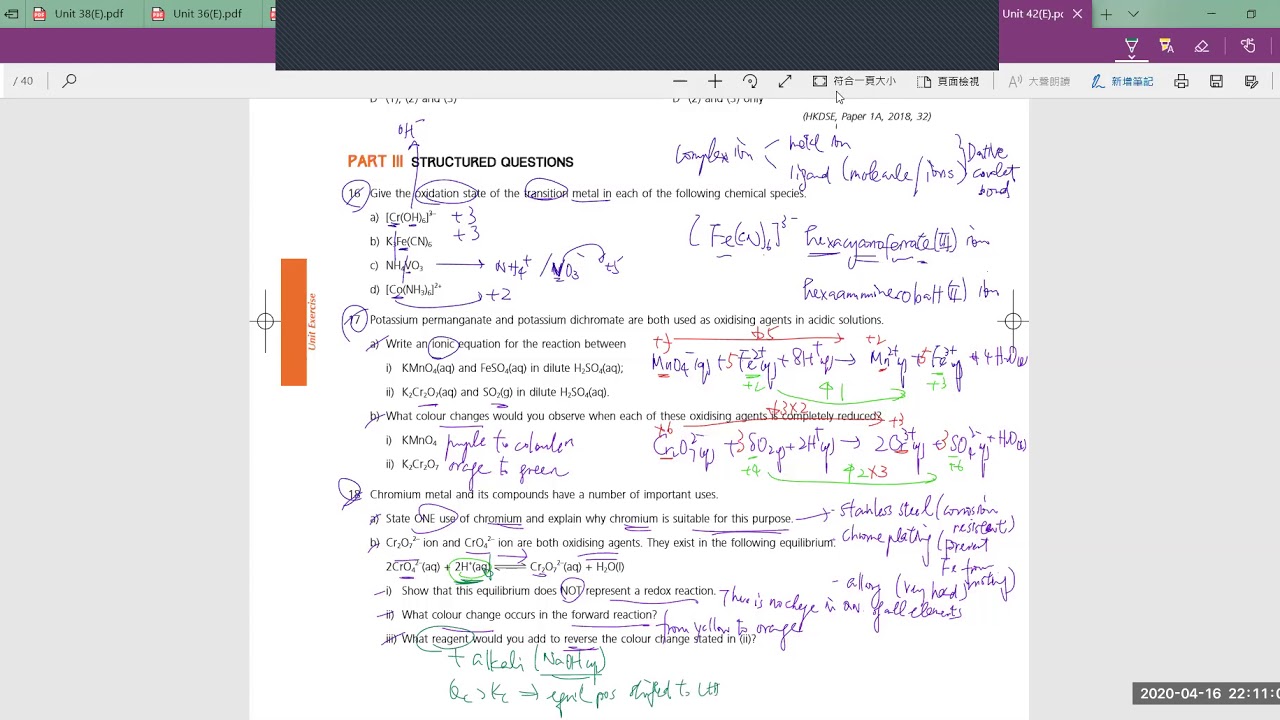 Unit 38(E).pdf
Unit 36(E).pdf
Unit 42(E).pc
/ 40
符合一頁大小
頁面檢視
大聲朗讀
新增筆記
D (1), (2) and (3)
D (2) and (3) only
(HKDSE, Paper 1A, 2018, 32)
OH⁻
complex ion < metal ion
ligand (molecule/ions) } Dative covalent bond
PART III STRUCTURED QUESTIONS
16 Give the oxidation state of the transition metal in each of the following chemical species.
a) [Cr(OH)₆]³⁻ +3
b) K₃Fe(CN)₆ +3
[Fe(CN)₆]³⁻ hexacyanoferrate(III) ion
c) NH₄VO₃ → NH₄⁺ / VO₃⁻ +5
d) [Co(NH₃)₆]²⁺ +2
hexaamminecobalt(II) ion
Unit Exercise
17 Potassium permanganate and potassium dichromate are both used as oxidising agents in acidic solutions.
a) Write an ionic equation for the reaction between
↓5
+2
MnO₄⁻(aq) + 5Fe²⁺(aq) + 8H⁺(aq) → Mn²⁺(aq) + 5Fe³⁺(aq) + 4H₂O(l)
i) KMnO₄(aq) and FeSO₄(aq) in dilute H₂SO₄(aq);
+2 ↑1 +3
ii) K₂Cr₂O₇(aq) and SO₂(g) in dilute H₂SO₄(aq).
b) What colour changes would you observe when each of these oxidising agents is completely reduced?
↓3×2
+6 +3
i) KMnO₄ purple to colourless
Cr₂O₇²⁻(aq) + 3SO₂(g) + 2H⁺(aq) → 2Cr³⁺(aq) + 3SO₄²⁻(aq) + H₂O(l)
ii) K₂Cr₂O₇ orage to green
+4 ↑2×3 +6
18 Chromium metal and its compounds have a number of important uses.
a) State ONE use of chromium and explain why chromium is suitable for this purpose.
- stainless steel (corrosion resistant)
- chrome plating (prevent Fe from rusting)
- alloy (very hard)
b) Cr₂O₇²⁻ ion and CrO₄²⁻ ion are both oxidising agents. They exist in the following equilibrium.
2CrO₄²⁻(aq) + 2H⁺(aq) ⇌ Cr₂O₇²⁻(aq) + H₂O(l)
i) Show that this equilibrium does NOT represent a redox reaction.
There is no change in o.n. of all elements
ii) What colour change occurs in the forward reaction?
from yellow to orange
iii) What reagent would you add to reverse the colour change stated in (ii)?
+ alkali (NaOH(aq))
Qc > Kc ⇒ equil pos shifted to LHS
2020-04-16 22:11:0